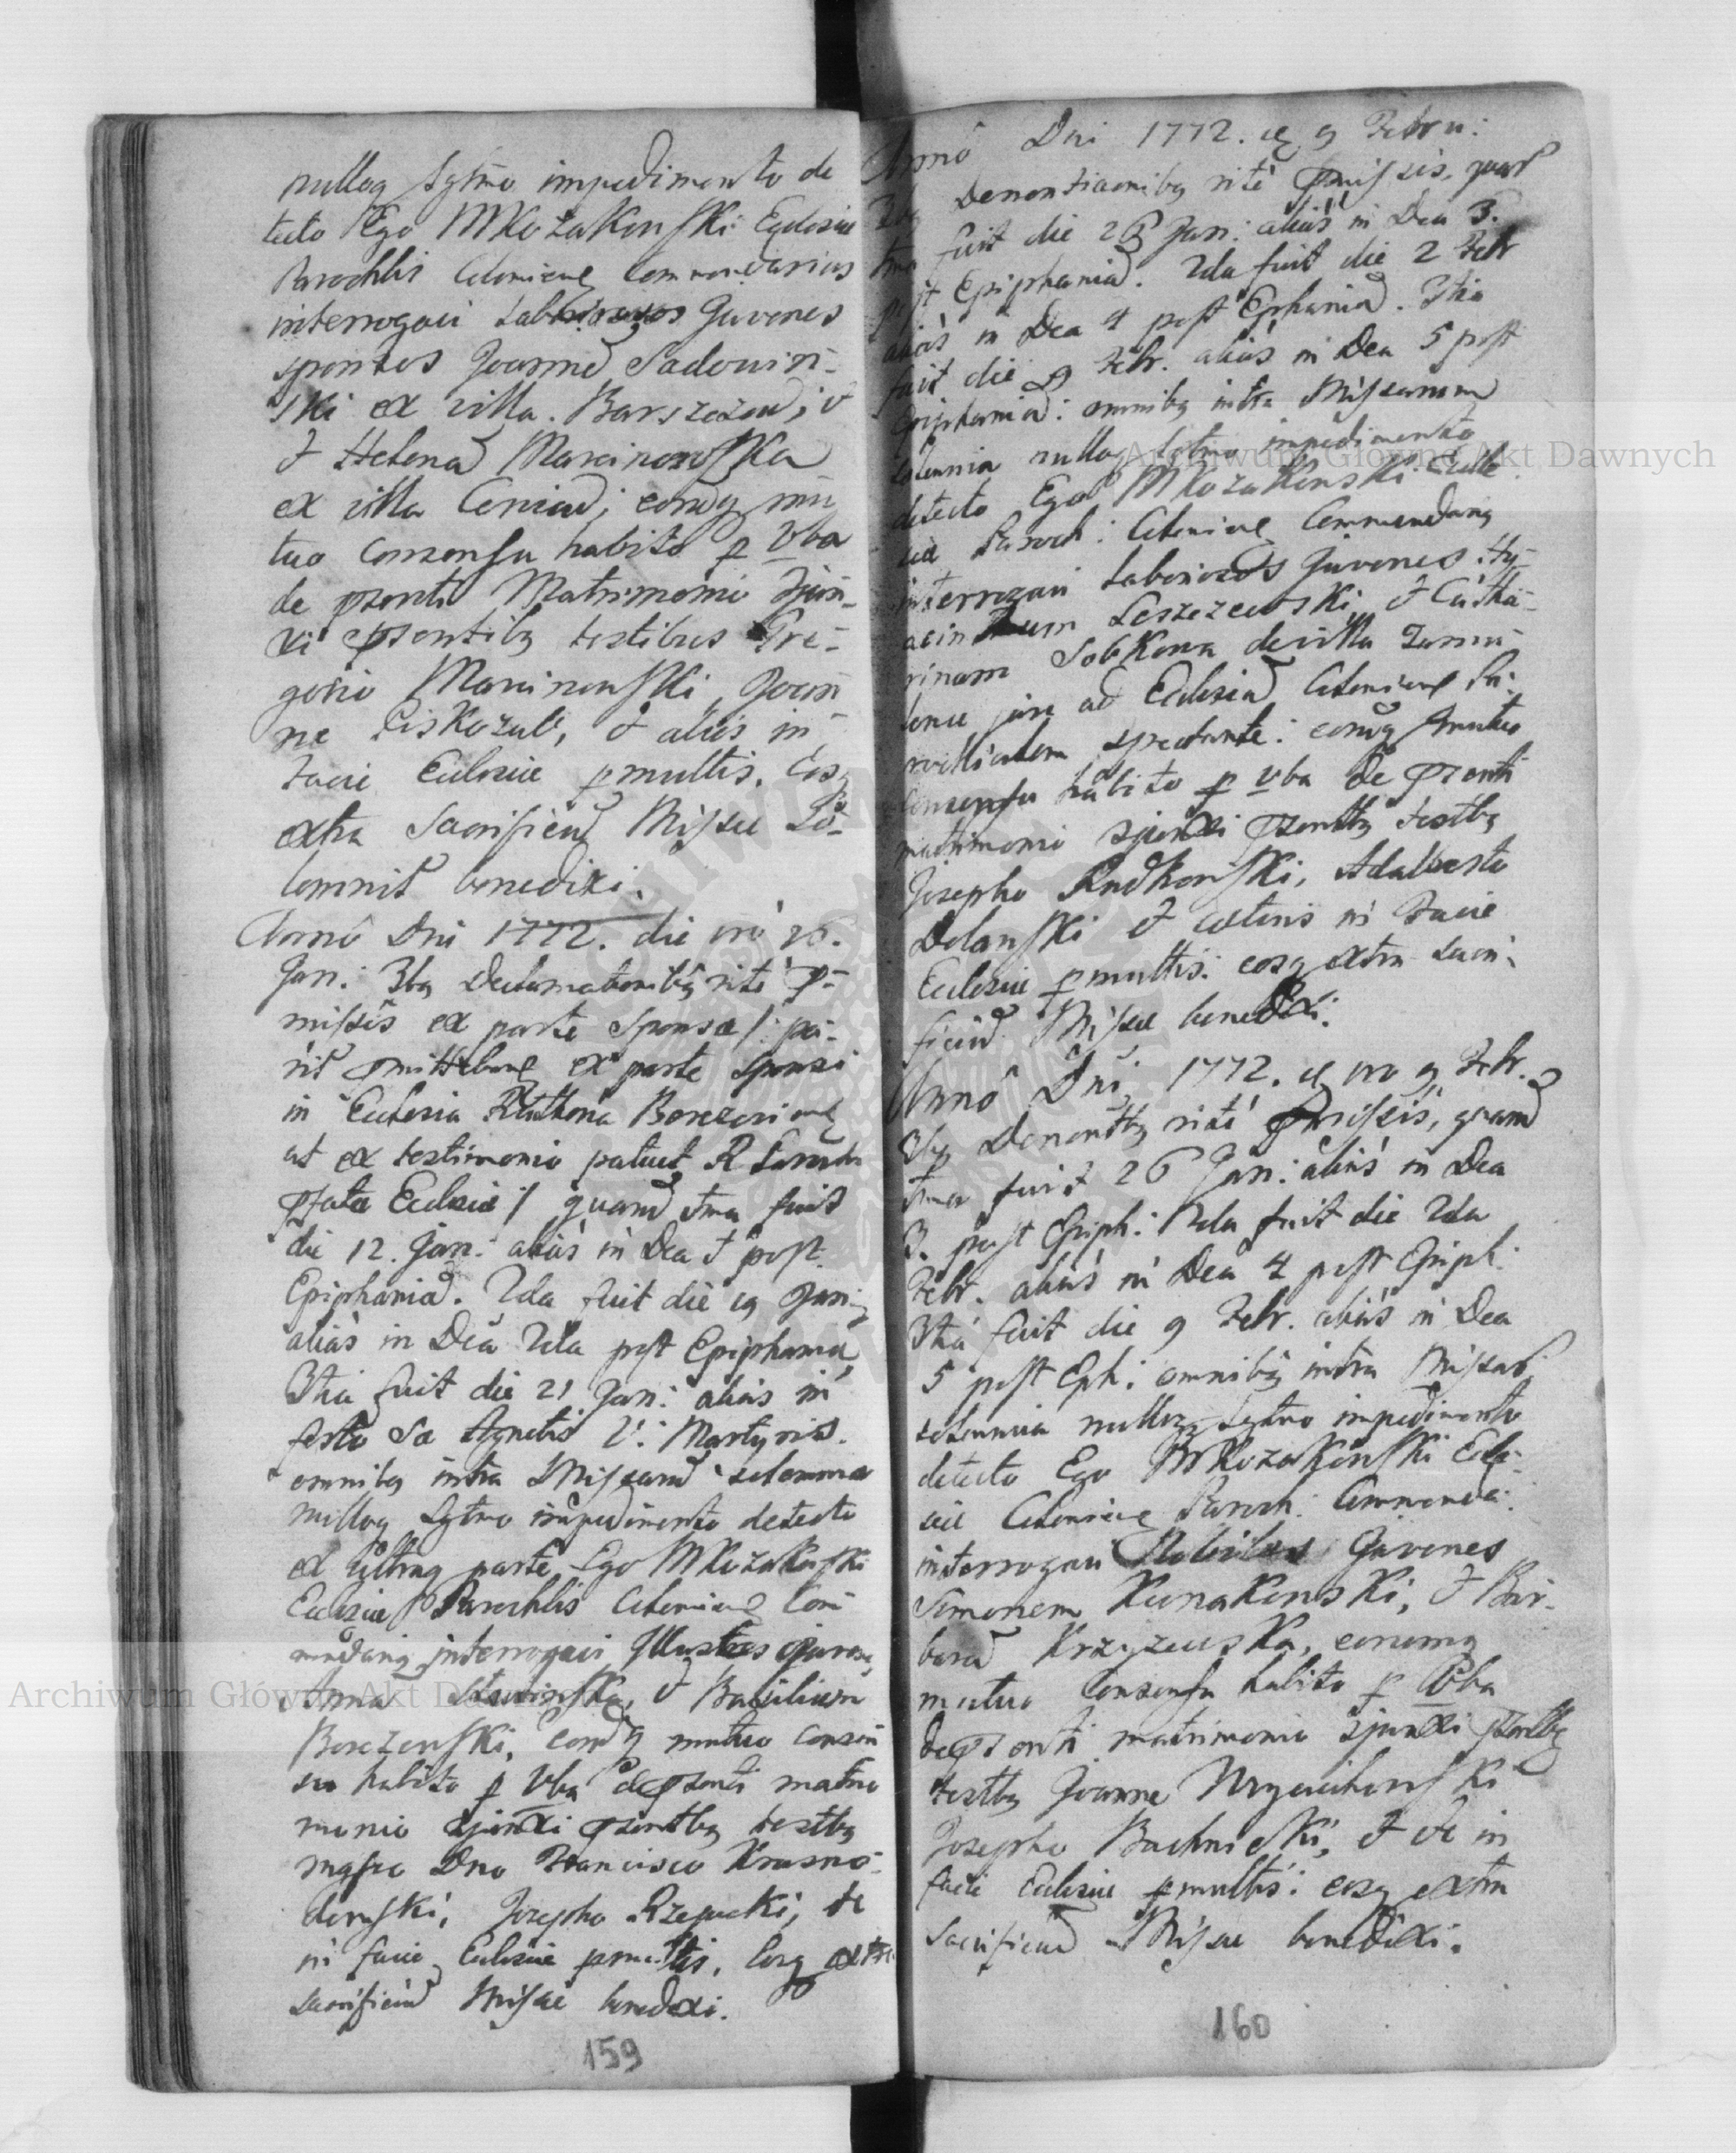 nullog lgtmo impedimento de
tecto Ego MKozakowski Ecclesiae
Parochlis Commendarius
interrogavi Laboriosos Juvenes
sponsos Joannem Sadowin-
ski ex villa Barszczew, et
et Helenam Marcinowska
ex villa eorumq mu
tuo Consensu habito p Vba
de psenti Matrimonio
psentibq testibus Gre-
gorio Marcinowski, Joan
ne et aliis in
facie Ecclesiae pmultis. Eosq
extra Sacrificium Missae So-
lemnis benedixi.
Anno Dni 1772. die vro 26.
Jan: 3bq rite p-
missis ex parte Sponsae /: pa-
rit ex parte Sponsi
in Ecclesia Ruthena
ut ex testimonio patuit R
pfatae Ecclesiae :/ quarum 1ma fuit
die 12. Jan: alias in Dca 1 post
Epiphaniam. 2da fuit die 19 Jan:
alias in Dca 2da post Epiphaniam,
3tia fuit die 21 Jan: alias in
festo Sae Agnetis V: Martyris.
omnibq intra Missarum solemnia
nulloq lgtmo impedimento detecto
ex utraq parte Ego MKozakowski
Ecclesiae Parochlis Com
mendariq interrogavi Illustres
Annam et Basilium
Borczewski, eorumq mutuo consen
su habito p Vba de psenti matri
monio psentbq testbq
Mgfco Dno Francisco Krasno-
demski, Josepho Rzepecki, etc
in facie Ecclesiae pmultis, Eosq extra
sacrificium Missae benedixi.
159
Anno Dni 1772. 9 Febru:
3bq Denontiaonibq rite pmissis, quar
1ma fuit die 26 Jan: alias in Dca 3.
post Epiphaniam. 2da fuit die 2 Febr
alias in Dca 4 post Ephaniam. 3tia
fuit die 9 Febr. alias in Dca 5 post
Epiphaniam: omnibq intra Missarum
solemnia nulloq lgtmo impedimento
detecto Ego MKozakowski Eccle
siae Paroch: Commendariq
interrogavi Laboriosos Juvenes Hy-
acinthum Leszczewski, et Catha-
rinam Sobkowa de villa
jure ad Ecclesiam Pa-
rochialem spectante: eorumq mutuo
Consensu habito p vba de psenti
matrimonio psentbq testbq
Josepho Rudkowski, Adalberto
Dolanski et ceteris in facie
Ecclesiae pmultis: eosq extra sacri-
ficium Missae benedixi.
Anno Dni 1772. vro 9 Febr.
3bq rite pmissis, quarum
1ma fuit 26 Jan: alias in Dca
3. post Epiph: 2da fuit die 2da
Febr. alias in Dca 4 post Epiph:
3tia fuit die 9 Febr. alias in Dca
5 post Eph: omnibq intra Missar
solemnia nulloq lgtmo impedimento
detecto Ego MKozakowski Eccle-
siae Paroch: Commenda:
interrogavi Nobiles Juvenes
Simonem Kunakowski, et Bar-
baram Krzyzewska, eorumq
mutuo Consensu habito p Vba
de psenti matrimonio psentbq
testbq Joanne
Josepho Buchnicki, et in
facie Ecclesiae pmultis: eosq extra
Sacrificium Missae benedixi.
160
Archiwum Główne Akt Dawnych
Archiwum Główne Akt Dawnych